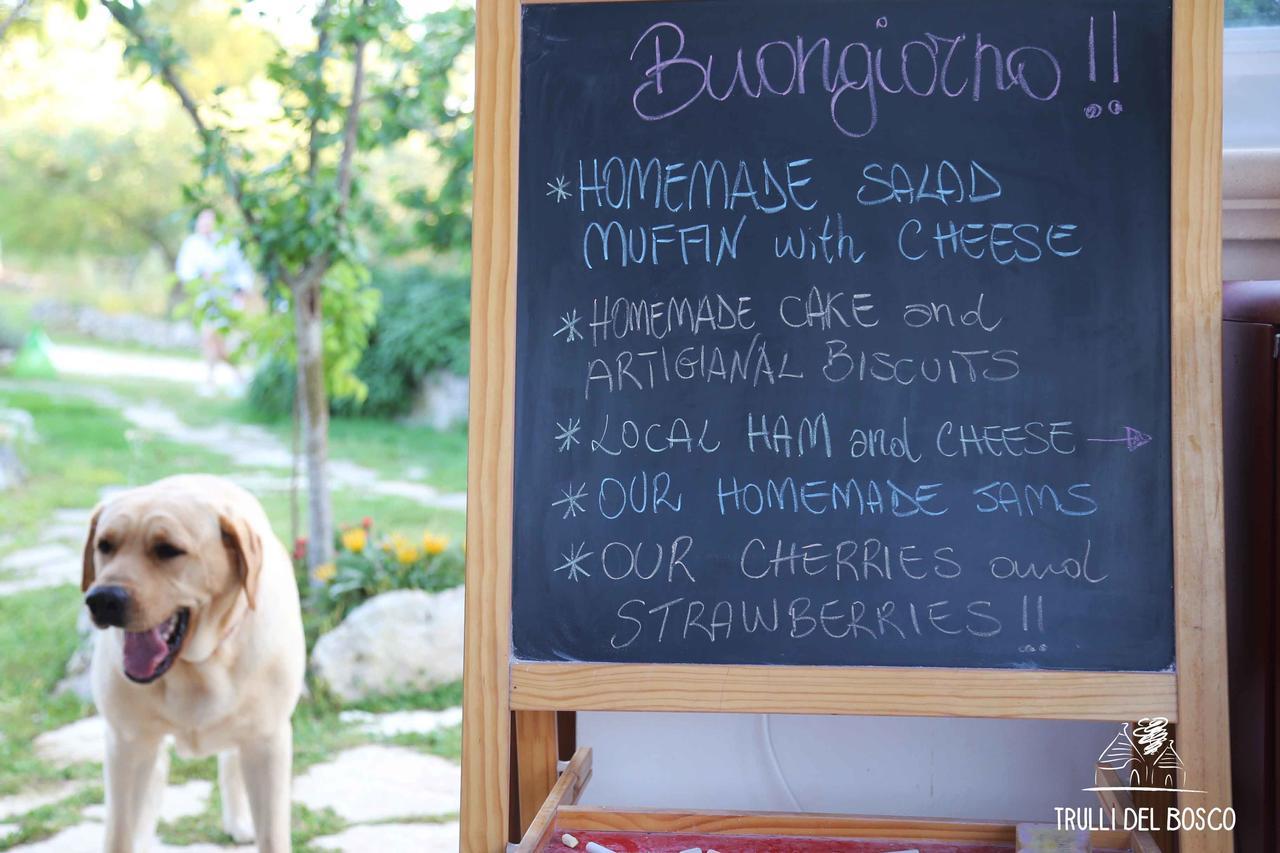 Buongiorno!!
* HOMEMADE SALAD
MUFFIN with CHEESE
* HOMEMADE CAKE and
ARTIGIANAL BISCUITS
* LOCAL HAM and CHEESE →
* OUR HOMEMADE JAMS
* OUR CHERRIES and
STRAWBERRIES!!
TRULLI DEL BOSCO